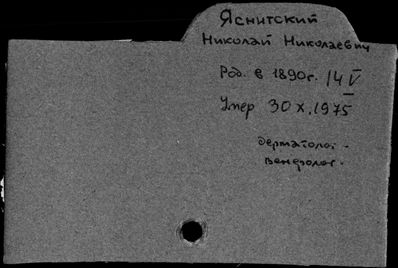 Яснитский
Николай Николаевич
Род. в 1890г. 14 V
Умер 30 X.1975
дерматолог-
венеролог.